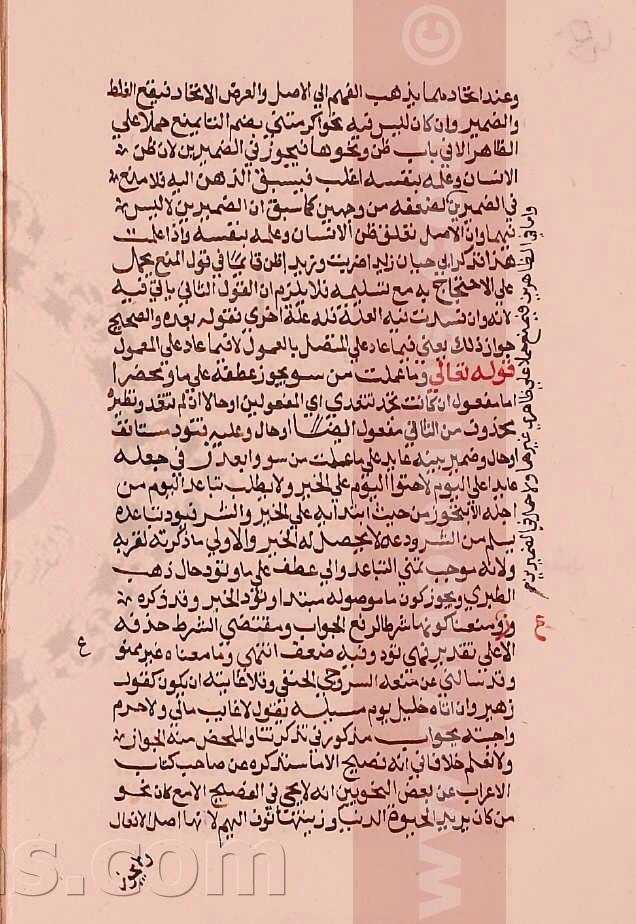 وعند اتحادهما يذهب الفهم الي الاصل والعرض الاتحاد فيقع الغلط
والضمير وان كان لبس فيه نحو اكرمتني بضم التا يمنع حملا علي
الظاهر الا في باب ظن ونحوها فيجوز في الضميرين لان ظن
الانسان وعلمه بنفسه اغلب فيسبق الذهن اليه فلا منع
في الضميرين لضعفه من وجهين كما سبق ان الضميرين لا لبس
فيهما وان الاصل تعلق ظن الانسان وعلمه بنفسه واذا علمت
هذا فذكر ابي حيان زيدا ضربت وزيد اظن قايما في قول المنع يحمل
علي الاحتجاج به مع تسليمه فلا يلزم ان القول الثاني باقي فيه
لانه وان فسدت فيه العلة فله علة اخري نقوله بعده والصحيح
جواز ذلك يعني فيما عاد علي المتصل بالعمول لا فيما عاد علي المعمول
قوله تعالي وما عملت من سو يجوز عطفه علي ما ومحضرا
اما مفعول ان كانت تجد تتعدي الي المفعولين او حالا ان لم تتعد ونظيره
محذوف من الثاني مفعول ايضا او حال وعليه فتود مستانف
او حال وضمير بينه عايد علي ما عملت من سو وابعد في جعله
عايدا علي اليوم لاحتوا اليوم علي الخير ولا يطلب تباعد اليوم من
اجله الا بتجوز من حيث اشتماله علي الخير والشر فيود تباعده
يسلم من الشر ودعه لا يحصل له الخير والاولي ما ذكرته لقربه
ولانه موجب تمني التباعد والي عطف علي ما وتود حال ذهب
الطبري ويجوز كون ما موصوله مبتدا وتود الخبر وقد ذكره
ومنعنا كونها شرطا لرفع الجواب ومقتضي الشرط حذفه
الا علي تقدير فهي تود وفيه ضعف انتهي وما معناه غير ممنوع
وقد سالني عن منعه السروجي الحنفي وقلا غايته ان يكون كقول
زهير وان اتاه خليل يوم مسغبة يقول لا غايب مالي ولا حرم
واجبته بجواب مذكور في تذكرتنا والملخص منه الجواز
ولا نعلم خلافا في انه فصيح الا ما سنذكره عن صاحب كتاب
الاعراب عن بعض النحويين انه لا يجي في الفصيح الا مع كان نحو
من كان يريد الحيوة الدنيا وزينتها نوف اليهم لانها اصل الافعال
واما في الظاهرين فيمنع حملا علي ظاهري غيرها ولا حملا في الضميرين
ع
ع